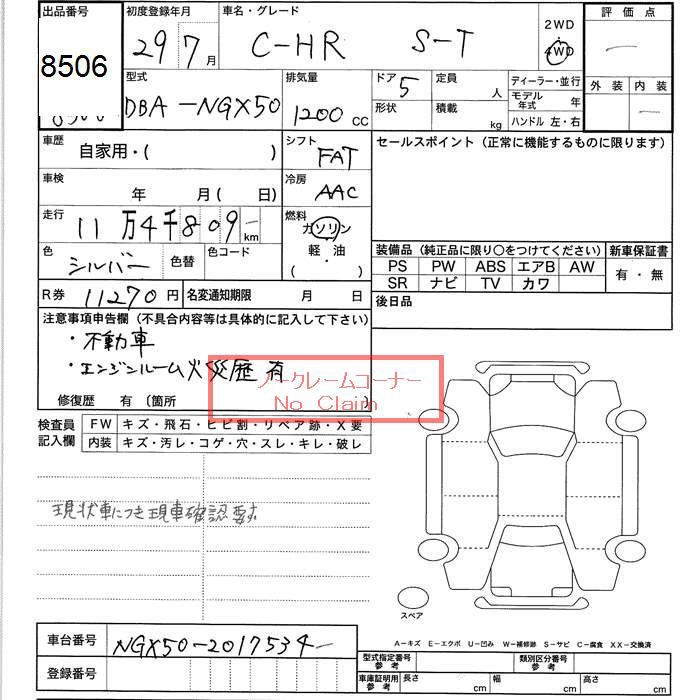 出品番号
8506
初度登録年月
29 7月
車名・グレード
C-HR S-T
2WD
4WD
評価点
外装 内装
型式
DBA-NGX50
排気量
1200 CC
ドア
5
形状
定員
人
積載
kg
ディーラー・並行
モデル年式 年
ハンドル 左・右
車歴
自家用・( )
シフト
FAT
セールスポイント(正常に機能するものに限ります)
車検
年 月( 日)
冷房
AAC
走行
11万4千809- km
燃料
ガソリン
軽・油
( ・ )
色
シルバー
色替
色コード
装備品(純正品に限り○をつけてください)
新車保証書
PS PW ABS エアB AW
SR ナビ TV カワ
有・無
R券 11270円
名変通知期限 月 日
後日品
注意事項申告欄(不具合内容等は具体的に記入して下さい)
・不動車
・エンジンルーム火災歴有
ノークレームコーナー
No Claim
修復歴 有(箇所 )
検査員記入欄
FW キズ・飛石・ヒビ割・リペア跡・X要
内装 キズ・汚レ・コゲ・穴・スレ・キレ・破レ
現状車につき現車確認要す
スペア
A-キズ E-エクボ U-凹み W-補修跡 S-サビ C-腐食 XX-交換済
車台番号
NGX50-2017534-
登録番号
型式指定番号参考
類別区分番号参考
車庫証明用参考
長さ cm
幅 cm
高さ cm